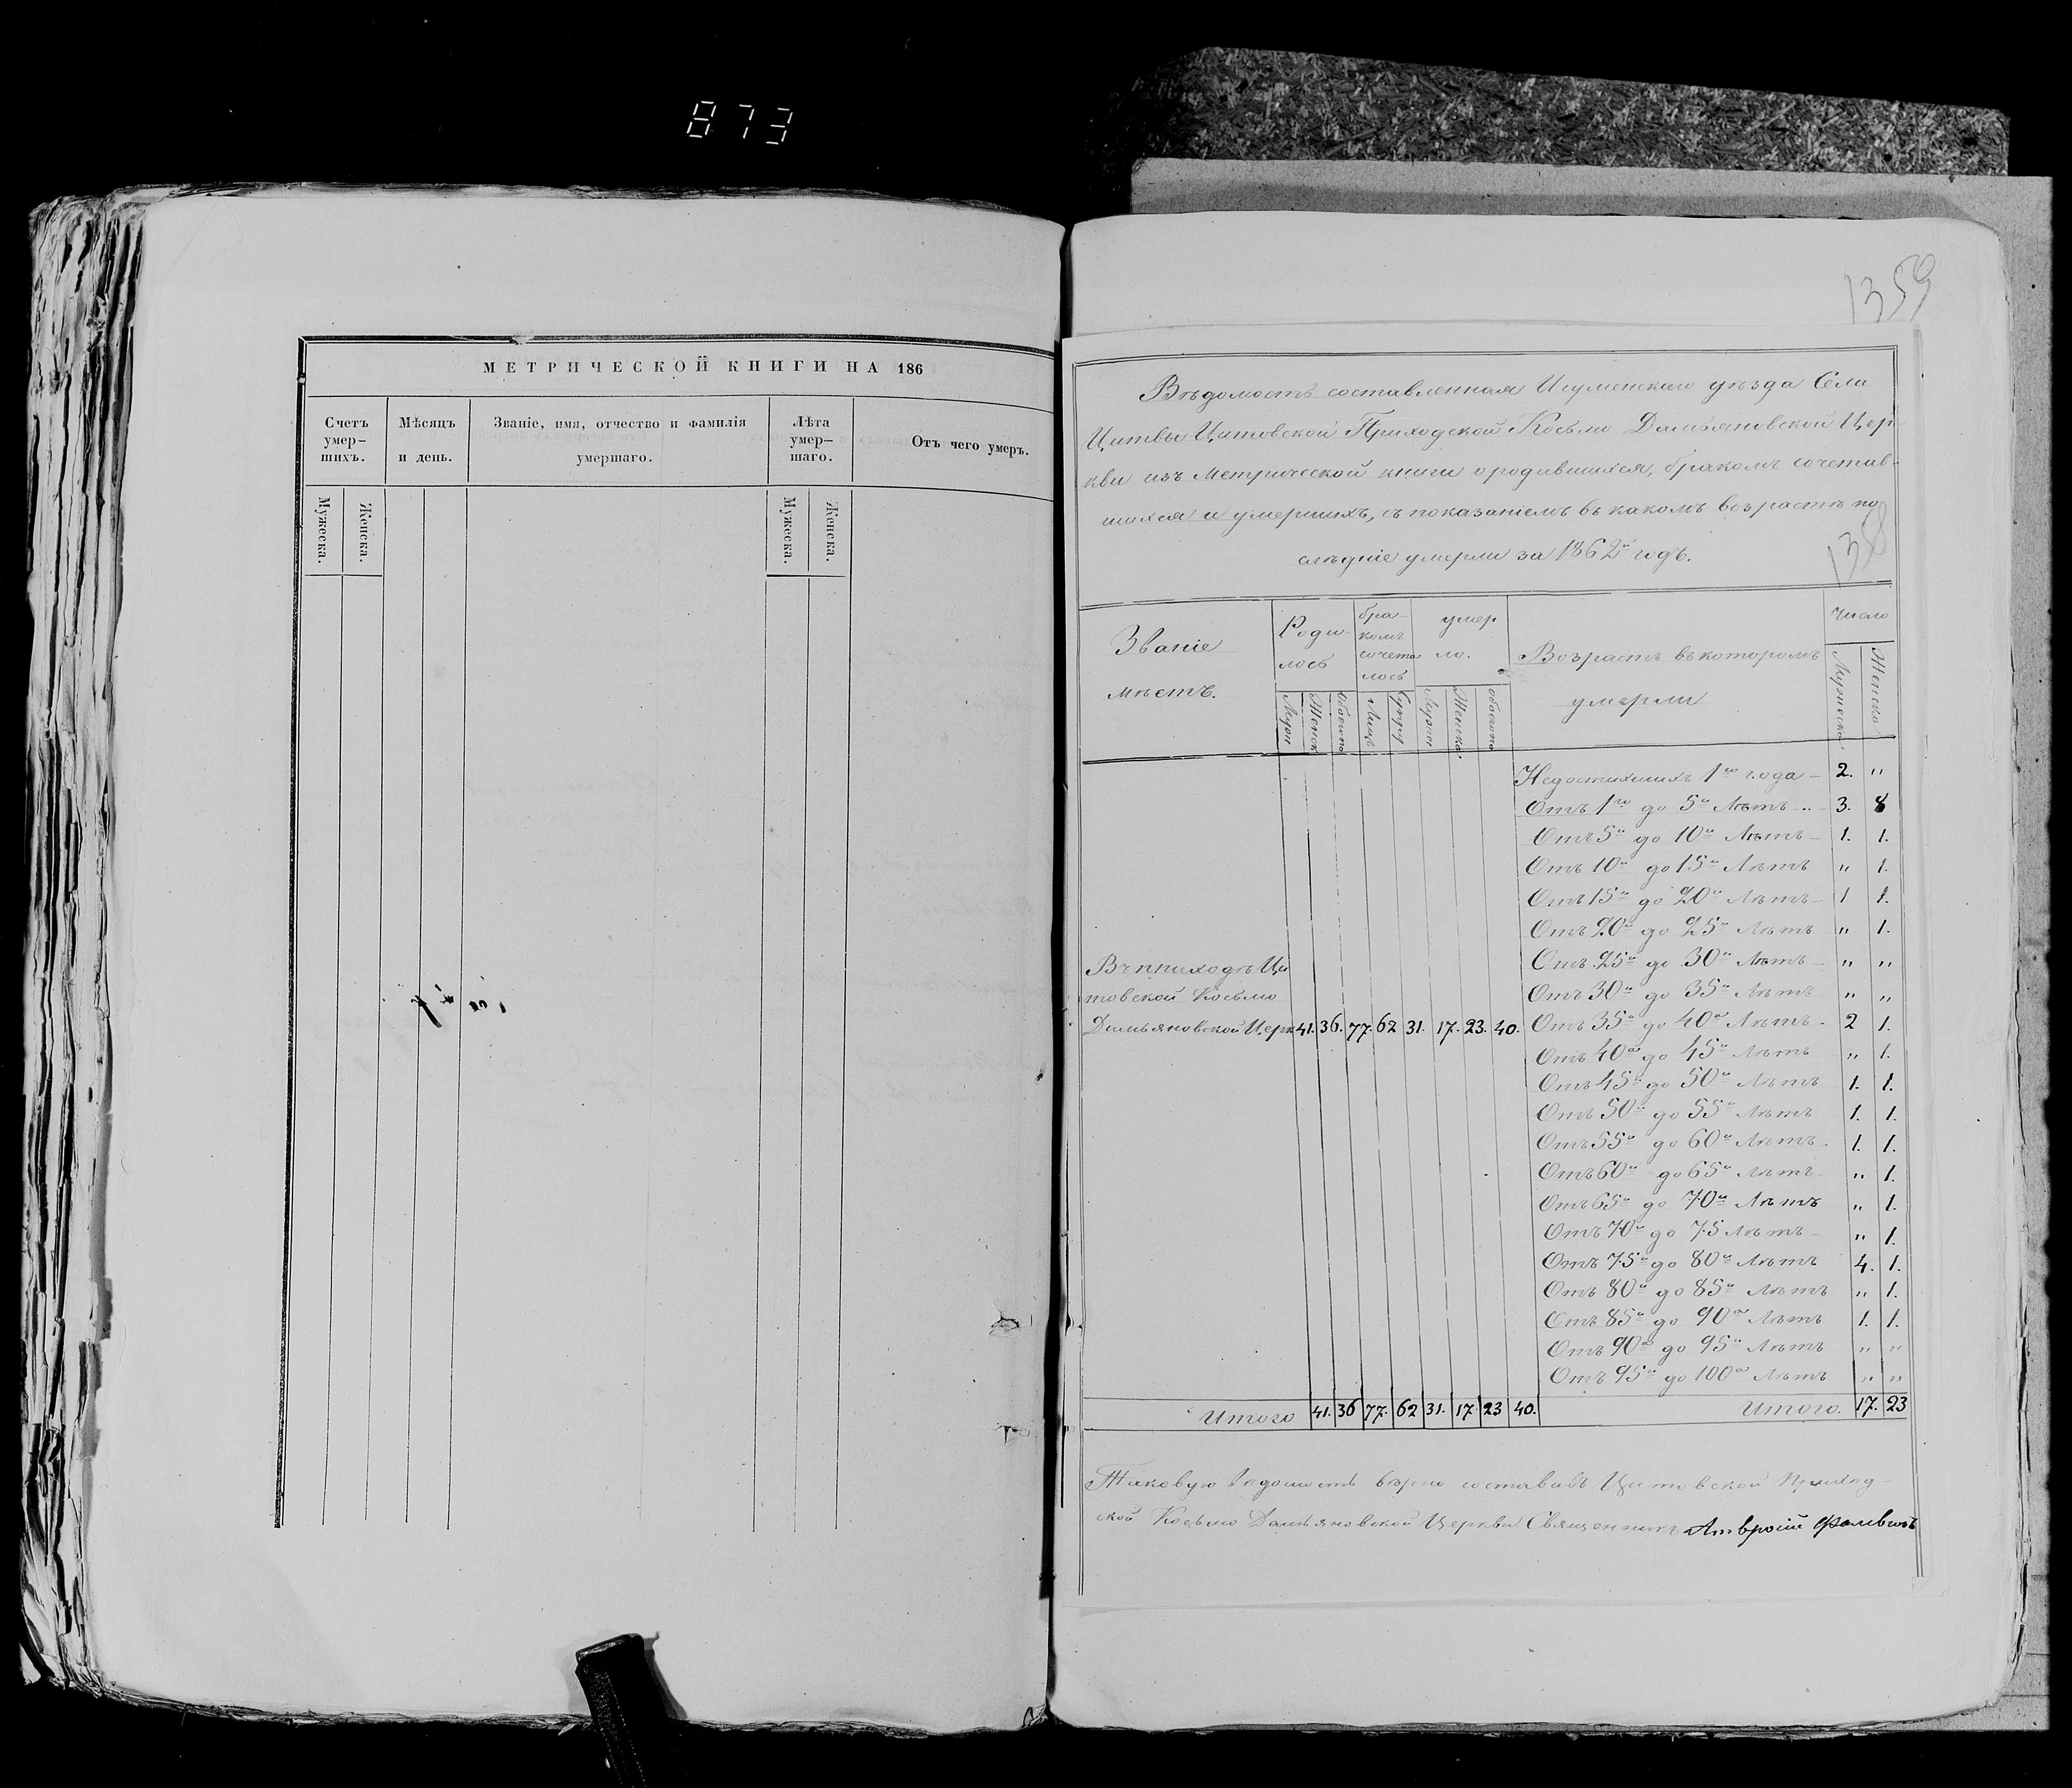 873
МЕТРИЧЕСКОЙ КНИГИ НА 186
Счетъ умер-шихъ.
Мѣсяцъ и день.
Званіе, имя, отчество и фамилія умершаго.
Лѣта умер-шаго.
Отъ чего умеръ.
Мужеска. Женска.
Мужеска. Женска.
1359
Вѣдомость составленная Игуменскаго уѣзда Села
Цитвы Цитовской Приходской Косьмо Дамьяновской Цер-
кви изъ Метрической книги о родившихся, бракомъ сочетав-
шихся и умершихъ, съ показаніемъ въ какомъ возрастѣ по
слѣдніе умерли за 1862й годъ.
138
Званіе мѣстъ.
Роди-лось
бра-комъ сочета лось
умер ло.
Возрастъ въ которомъ умерли
Число
Женск Обоего по Лицъ
Женска Обоего по
Мужеска Женска
Недостигшихъ 1го года 2. "
Отъ 1го до 5и Лѣтъ 3. 8
Отъ 5и до 10и Лѣтъ 1. 1.
Отъ 10и до 15и Лѣтъ " 1.
Отъ 15и до 20и Лѣтъ 1 1.
Отъ 20и до 25и Лѣтъ " 1.
Отъ 25и до 30и Лѣтъ " "
Отъ 30и до 35и Лѣтъ " "
Въ приходѣ Ци
товской Косьмо
Дамьяновской Церк 41. 36. 77. 62 31. 17. 23. 40.
Отъ 35и до 40а Лѣтъ 2 1.
Отъ 40а до 45и Лѣтъ " 1.
Отъ 45и до 50и Лѣтъ 1. 1.
Отъ 50и до 55и Лѣтъ 1. 1.
Отъ 55и до 60и Лѣтъ 1. 1.
Отъ 60и до 65и Лѣтъ " 1.
Отъ 65и до 70и Лѣтъ " 1.
Отъ 70и до 75 Лѣтъ " 1.
Отъ 75и до 80и Лѣтъ 4. 1.
Отъ 80и до 85и Лѣтъ " 1.
Отъ 85и до 90а Лѣтъ 1. 1.
Отъ 90а до 95и Лѣтъ " "
Отъ 95и до 100а Лѣтъ " "
Итого 41. 36 77. 62 31. 17. 23 40. Итого. 17. 23
Таковую вѣдомость вѣрно составивъ Цитовской Приход-
ской Косьмо Дамьяновской Церкви Священникъ